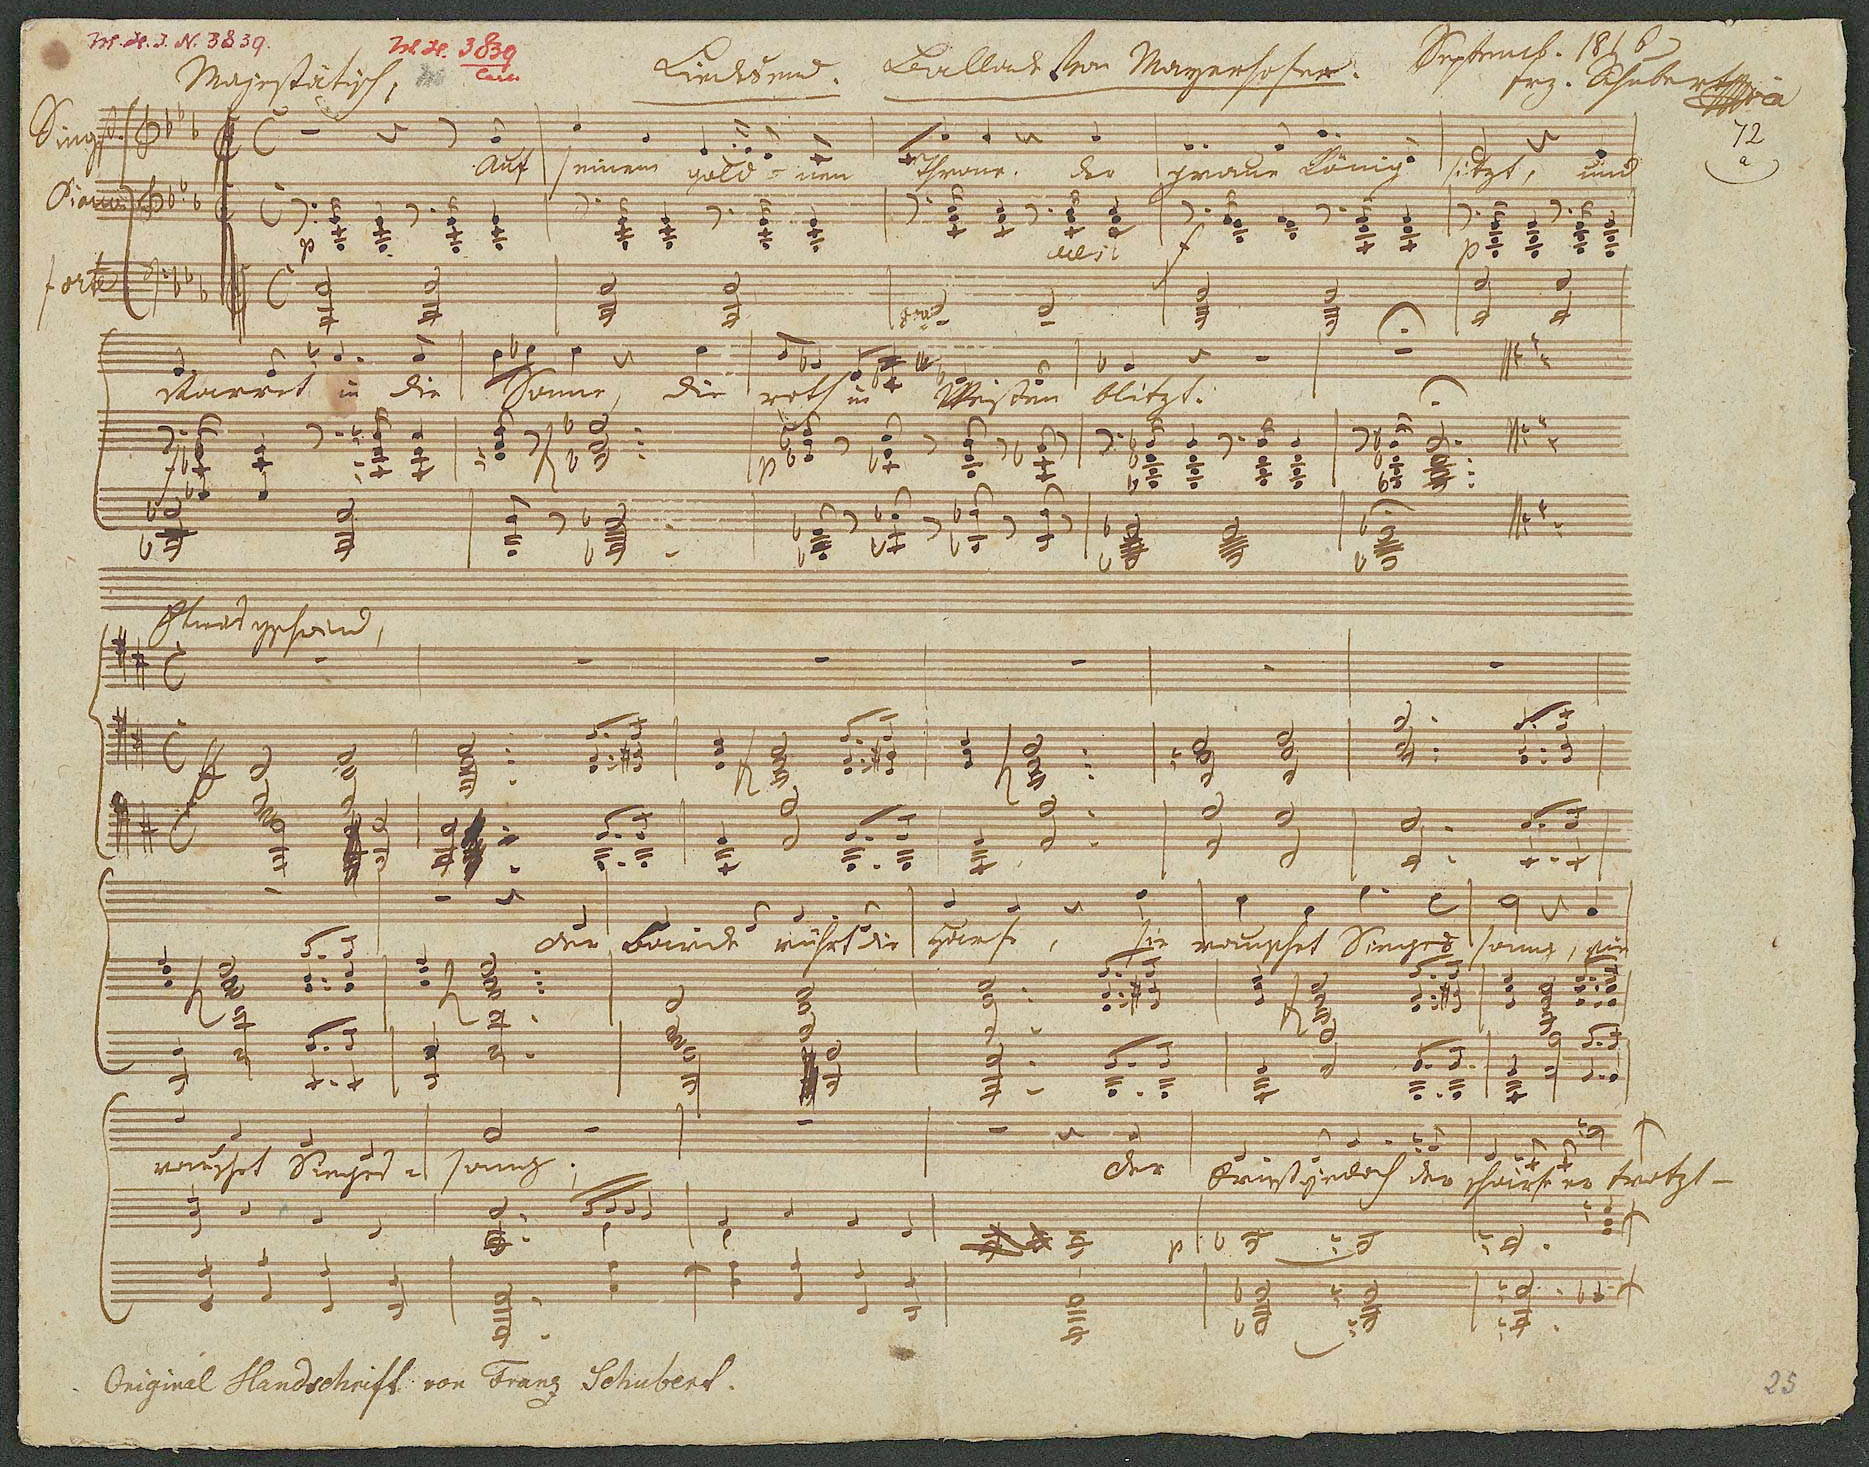 M. H. I. N. 3839.
M. H. 3839
Majestätisch,
Liedesend. Ballade von Mayerhofer.
Septemb. 1816
frz. Schubert mpia
72
a
Singst.
Piano
forte
Auf seinem gold-nen Throne. der graue König sitzt, und
p cresc f p
starret in die Sonne, die roth in Westen blitzt.
f p
Etwas geschwind,
ff
der Barde rührt die Harfe, sie rauschet Sieges sang, sie
rauschet Sieges- sang; der Ernst jedoch der Harfe er trotzt –
p
Original Handschrift von Franz Schubert.
25